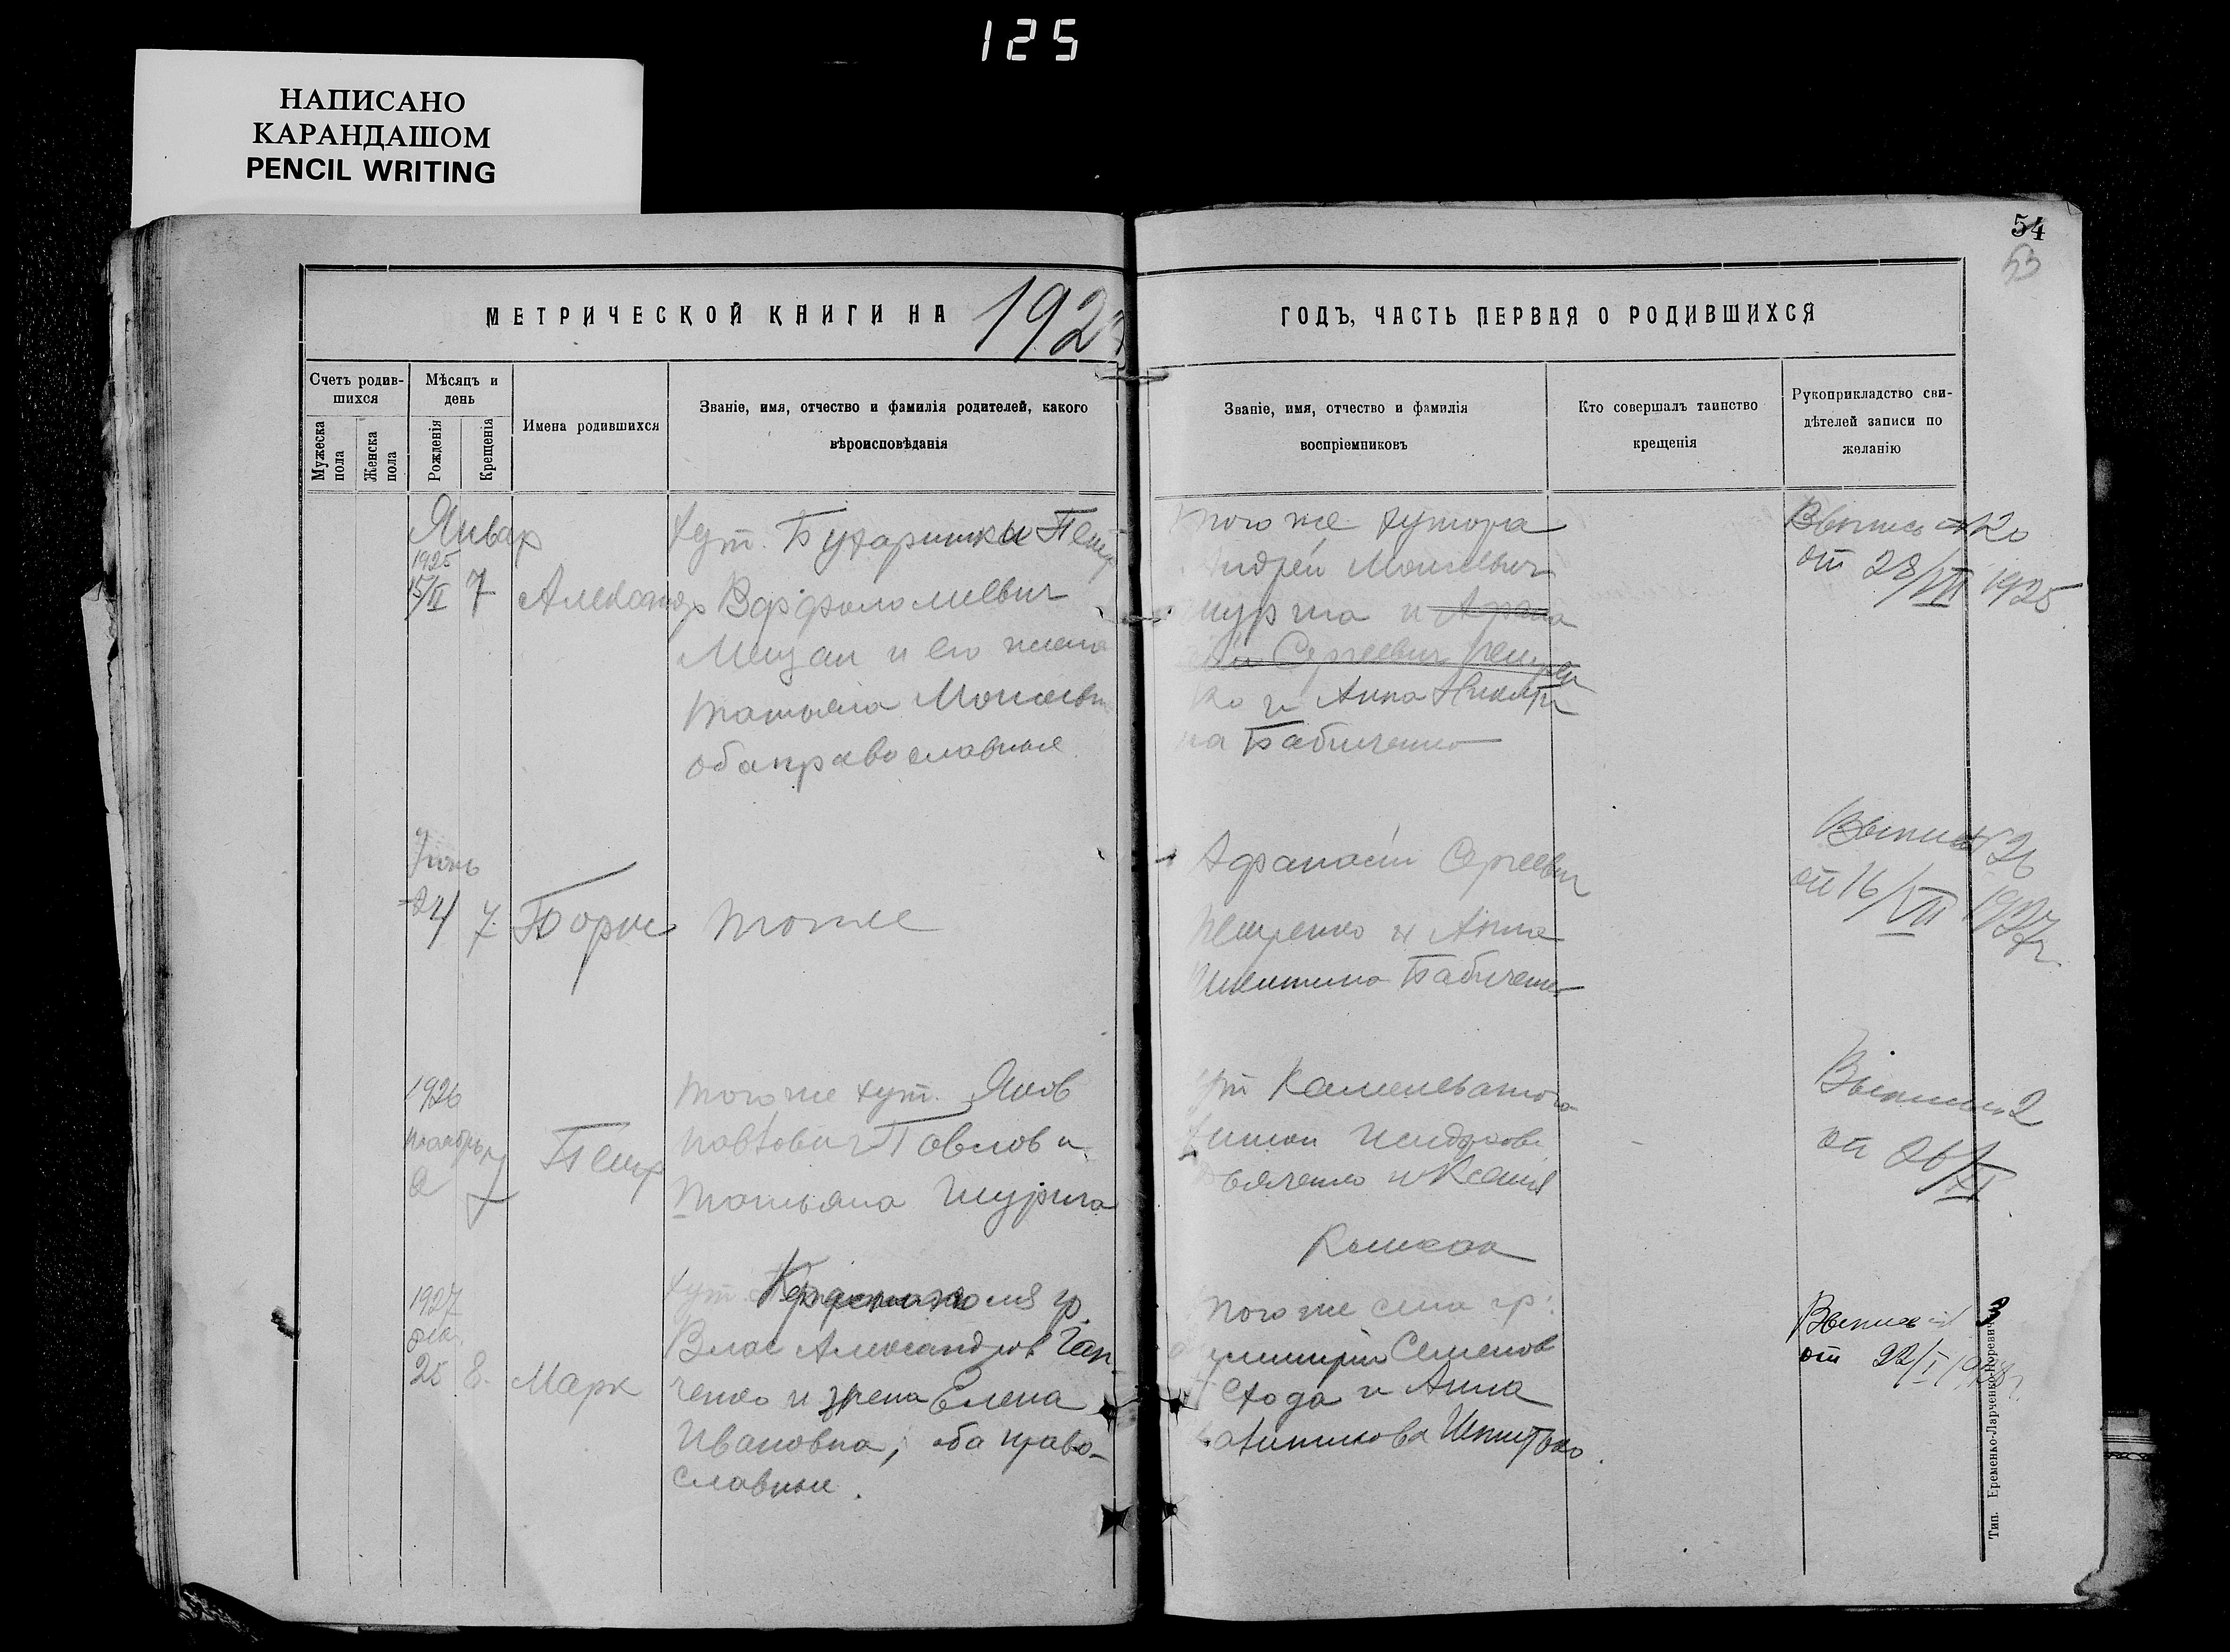 125
НАПИСАНО
КАРАНДАШОМ
PENCIL WRITING
54
53
МЕТРИЧЕСКОЙ КНИГИ НА 192
ГОДЪ, ЧАСТЬ ПЕРВАЯ О РОДИВШИХСЯ
Счетъ родив-
шихся
Мужеска
пола
Женска
пола
Мѣсяцъ и
день
Рожденія
Крещенія
Имена родившихся
Званіе, имя, отчество и фамилія родителей, какого
вѣроисповѣданія
Званіе, имя, отчество и фамилія
воспріемниковъ
Кто совершалъ таинство
крещенія
Рукоприкладство сви-
дѣтелей записи по
желанію
Январ
1925
15/II 7
Александр
хут. Бухаринки Петр
Варфоломеевич
Мещан и его жена
Татьяна Моисеевн
оба православные
того же хутора
Андрей Моисеевич
Шурша и
Сергеевич
ко и Анна Никити
на Бабиченко
Выпись 20
от 28/VII 1925
Июнь
24 7
Борис
тоже
Афанасий Сергеевич
Петренко и Анна
Никитина Бабиченко
Выпись 26
от 16/VIII 1927г
1926
ноябрь
2 7
Петр
того же хут. Яков
Павлов и
Татьяна Шурша
хут Камышеватого
и Ксения
Выпись 2
от 26/XI
1927
дек.
25 8.
Марк
хут. гр.
Влас Александров Ган
ченко и жена Елена
Ивановна, оба право-
славные.
того же села гр.
Димитрий Семенов
Схода и Анна
Выпись 3
от 22/I 1928г.
Тип. Еременко-Ларченко-Норевичъ